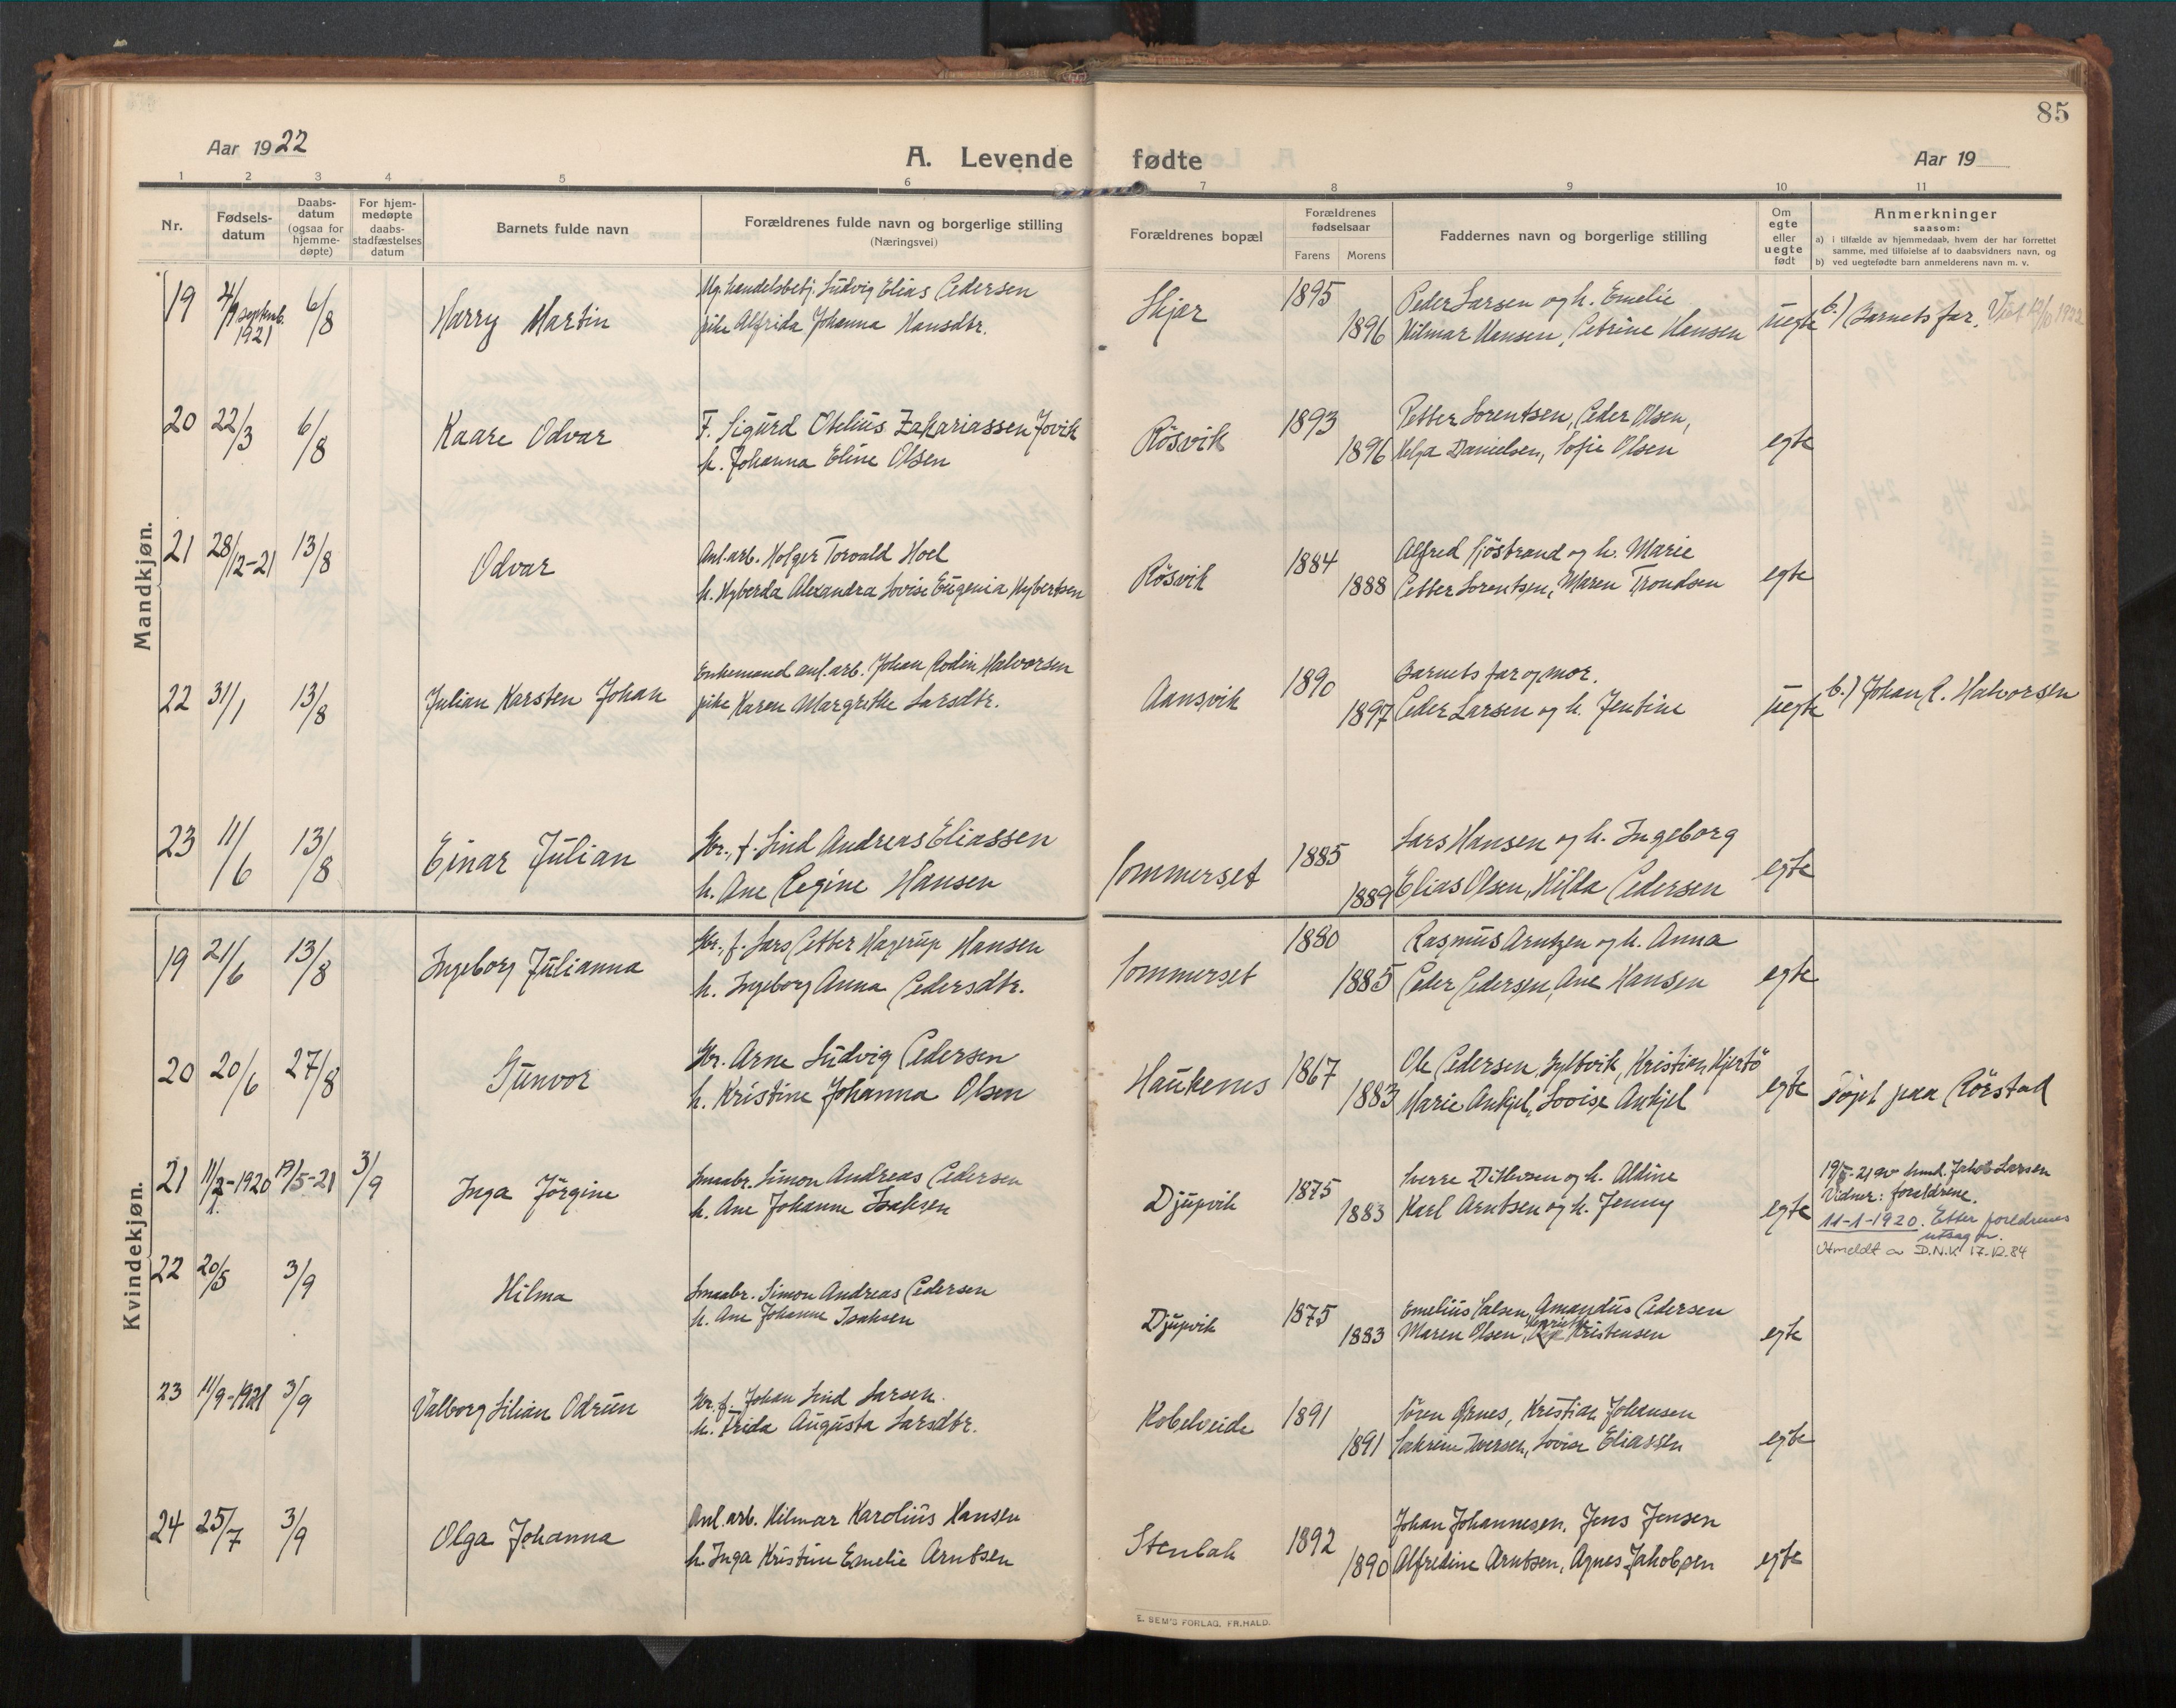 85
Aar 1922
A. Levende fødte
Aar 19
1 2 3 4 5 6 7 8 9 10 11
Nr.
Fødsels-
datum
Daabs-
datum
(ogsaa for
hjemme-
døpte)
For hjem-
medøpte
daabs-
stadfæstelses
datum
Barnets fulde navn
Forældrenes fulde navn og borgerlige stilling
(Næringsvei)
Forældrenes bopæl
Forældrenes
fødselsaar
Farens Morens
Faddernes navn og borgerlige stilling
Om
egte
eller
uegte
født
Anmerkninger
saasom:
a) i tilfælde av hjemmedaab, hvem der har forrettet
samme, med tilføielse af to daabsvidners navn, og
b) ved uegtefødte barn anmelderens navn m. v.
Mandkjøn.
19 4/9 septemb. 1921 6/8 Harry Martin
Ug. handelsbetj. Ludvig Elias Pedersen
pike Alfrida Johanna Hansdtr.
Skjær 1895 1896
Peder Larsen og h. Emelie
Hilmar Hansen, Petrine Hansen
uegte b.) Barnets far.
20 22/3 6/8 Kaare Odvar
F. Sigurd Otelius Zakariassen Jovik
h. Johanna Eline Olsen
Rösvik 1893 1896
Petter Lorentsen, Peder Olsen,
Helga Danielsen, Sofie Olsen
egte
21 28/12-21 13/8 Odvar
Anl.arb. Holger Torvald Hoel
h. Hyberda Alexandra Lovise Eugenia Hybertsen
Rösvik 1884 1888
Alfred Sjöstrand og h. Marie
Petter Lorentsen, Maren Trondsen
egte
22 31/1 13/8 Julian Karsten Johan
Enkemand anl.arb. Johan Rodin Halvorsen
pike Karen Margrethe Larsdtr.
Aansvik 1890 1897
Barnets far og mor.
Peder Larsen og h. Jentine
uegte b.) Johan R. Halvorsen
23 11/6 13/8 Einar Julian
Gbr., f. Lind Andreas Eliassen
h. Ane Regine Hansen
Sommerset 1885 1889
Lars Hansen og h. Ingeborg
Elias Olsen, Hilda Pedersen
egte
Kvindekjøn.
19 21/6 13/8 Ingeborg Julianna
Gbr. f. Lars Petter Hagerup Hansen
h. Ingeborg Anna Pedersdtr.
Sommerset 1880 1885
Rasmus Arntzen og h. Anna
Peder Pedersen, Ane Hansen
egte
20 20/6 27/8 Gunvor
Gbr. Arne Ludvig Pedersen
h. Kristine Johanna Olsen
Haukenes 1867 1883
Ole Pedersen, Gyltvik, Kristian Hjertö
Marie Ankjel, Lovise Ankjel
egte Döpt paa Rörstad
21 11/2-1920 19/5-21 3/9 Inga Jörgine
Smaabr. Simon Andreas Pedersen
h. Ane Johanne Isaksen
Djupvik 1875 1883
Sverre Ditlevsen og h. Aldine
Karl Arntsen og h. Jenny
egte 19/5-21 av Jakob Larsen
Vidner: forældrene.
11-1-1920. Etter foreldrenes
utsagn.
Utmeldt av D.N.K 17.12.84
22 20/5 3/9 Hilma
Smaabr. Simon Andreas Pedersen
h. Ane Johanne Isaksen
Djupvik 1875 1883
Emelius Palsen, Amandus Pedersen
Maren Olsen, Kristensen
egte
23 11/9-1921 3/9 Valborg Lilian Odrun
Gbr. f. Johan Lind Larsen.
h. Frida Augusta Larsdtr.
Kobelveide 1891 1891
Sören Ørnes, Kristian Johansen
Iversen, Lovise Eliassen
egte
24 25/7 3/9 Olga Johanna
Anl.arb. Hilmar Karolius Hansen
h. Inga Kristine Emelie Arntsen
Stenbak 1892 1890
Johan Johannesen, Jens Jensen
Alfredine Arntsen, Agnes Jakobsen
egte
E. SEM'S FORLAG, FR.HALD.